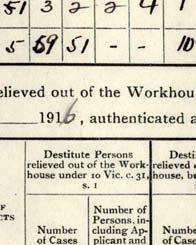 51 3 2 2 4 1
5 59 51 - - 10
elieved out of the Workhou
1916, authenticated a
Destitute Persons
relieved out of the Work-
house under 10 Vic. c. 31,
s. 1
Desti
relieved
house, b
OF
CTS
Number
of Cases
Number of
Persons, in-
cluding Ap-
plicant and
Number
of Cases